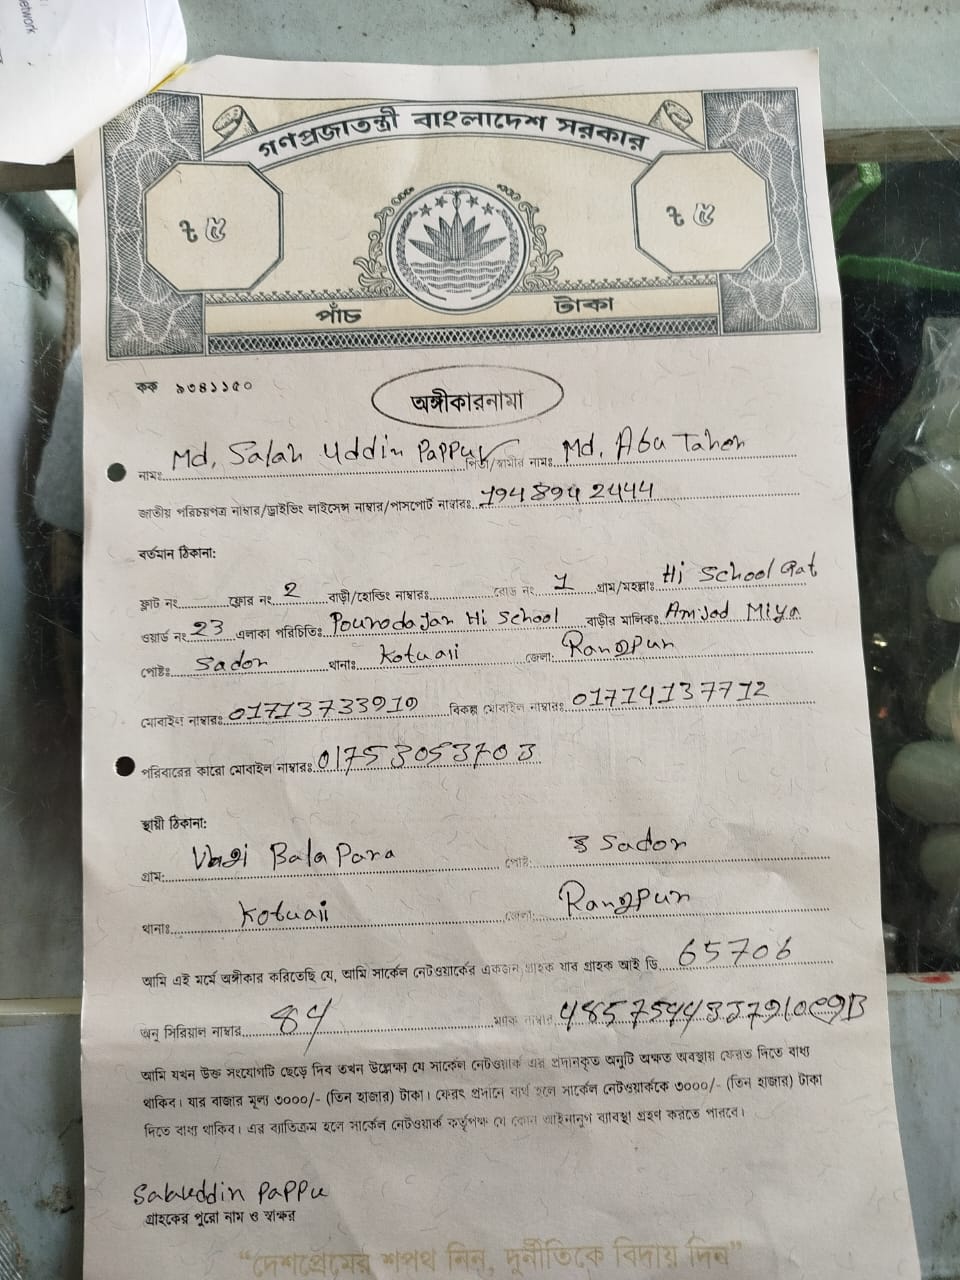 etwork
গণপ্রজাতন্ত্রী বাংলাদেশ সরকার
৳ ৫ ৳ ৫
পাঁচ টাকা
কক ৯৩৪১১৫০
অঙ্গীকারনামা
নামঃ Md. Salah Uddin Pappu পিতা/স্বামীর নামঃ Md. Abu Taher
জাতীয় পরিচয়পত্র নাম্বার/ড্রাইভিং লাইসেন্স নাম্বার/পাসপোর্ট নাম্বারঃ 1948942444
বর্তমান ঠিকানা:
ফ্লাট নং ফ্লোর নং 2 বাড়ী/হোল্ডিং নাম্বারঃ রোড নং 1 গ্রাম/মহল্লাঃ Hi School Gat
ওয়ার্ড নং 23 এলাকা পরিচিতিঃ Pourodajan Hi School বাড়ীর মালিকঃ Amjad Miya
পোষ্টঃ Sador থানাঃ Kotuaii জেলাঃ Rangpur
মোবাইল নাম্বারঃ 01713733919 বিকল্প মোবাইল নাম্বারঃ 01714137712
পরিবারের কারো মোবাইল নাম্বারঃ 01753053703
স্থায়ী ঠিকানা:
গ্রাম: Bala Para পোষ্ট: Sador
থানাঃ Kotuaii জেলা: Rangpur
আমি এই মর্মে অঙ্গীকার করিতেছি যে, আমি সার্কেল নেটওয়ার্কের একজন গ্রাহক যার গ্রাহক আই ডি 65706
অনু সিরিয়াল নাম্বার 84 ম্যাক নাম্বার
আমি যখন উক্ত সংযোগটি ছেড়ে দিব তখন উল্লেখ্য যে সার্কেল নেটওয়ার্ক এর প্রদানকৃত অনুটি অক্ষত অবস্থায় ফেরত দিতে বাধ্য
থাকিব। যার বাজার মূল্য ৩০০০/- (তিন হাজার) টাকা। ফেরৎ প্রদানে ব্যর্থ হলে সার্কেল নেটওয়ার্ককে ৩০০০/- (তিন হাজার) টাকা
দিতে বাধ্য থাকিব। এর ব্যতিক্রম হলে সার্কেল নেটওয়ার্ক কর্তৃপক্ষ যে কোন আইনানুগ ব্যবস্থা গ্রহণ করতে পারবে।
Salauddin Pappu
গ্রাহকের পুরো নাম ও স্বাক্ষর
“দেশপ্রেমের শপথ নিন, দুর্নীতিকে বিদায় দিন”